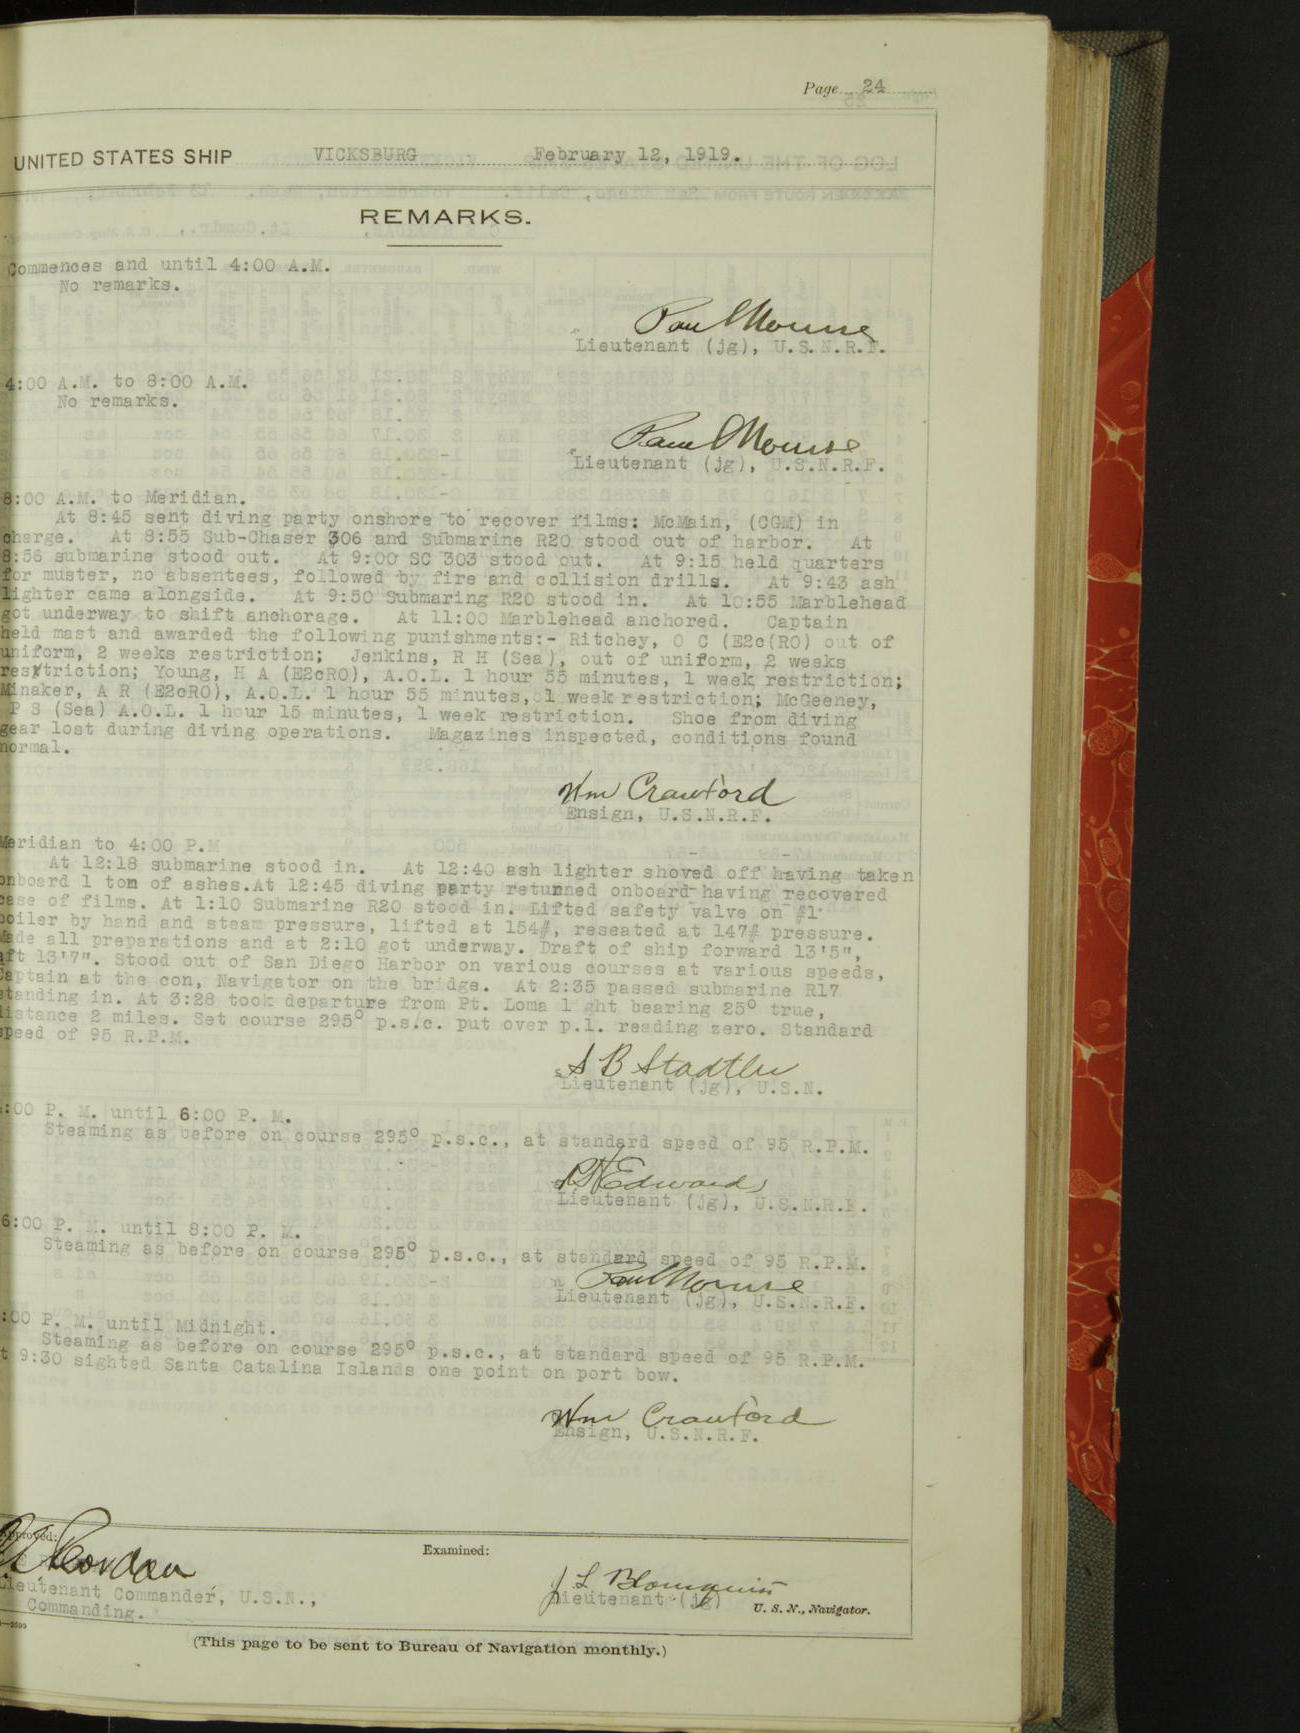 Page 24
UNITED STATES SHIP VICKSBURG February 12, 1919.
REMARKS.
Commences and until 4:00 A.M.
No remarks.
Lieutenant (jg), U.S.N.R.F.
4:00 A.M. to 8:00 A.M.
No remarks.
Lieutenant (jg), U.S.N.R.F.
8:00 A.M. to Meridian.
At 8:45 sent diving party onshore to recover films: McMain, (CGM) in
charge. At 8:55 Sub-Chaser 306 and Submarine R20 stood out of harbor. At
8:56 submarine stood out. At 9:00 SC 303 stood out. At 9:15 held quarters
for muster, no absentees, followed by fire and collision drills. At 9:43 ash
lighter came alongside. At 9:50 Submaring R20 stood in. At 10:55 Marblehead
got underway to shift anchorage. At 11:00 Marblehead anchored. Captain
held mast and awarded the following punishments:- Ritchey, O C (E2c(RO) out of
uniform, 2 weeks restriction; Jenkins, R H (Sea), out of uniform, 2 weeks
restriction; Young, H A (E2cRO), A.O.L. 1 hour 55 minutes, 1 week restriction;
Minaker, A R (E2cRO), A.O.L. 1 hour 55 minutes, 1 week restriction; McGeeney,
P S (Sea) A.O.L. 1 hour 15 minutes, 1 week restriction. Shoe from diving
gear lost during diving operations. Magazines inspected, conditions found
normal.
Wm Crawford
Ensign, U.S.N.R.F.
Meridian to 4:00 P.M
At 12:18 submarine stood in. At 12:40 ash lighter shoved off having taken
onboard 1 ton of ashes.At 12:45 diving party returned onboard having recovered
case of films. At 1:10 Submarine R20 stood in. Lifted safety valve on #1
boiler by hand and steam pressure, lifted at 154#, reseated at 147# pressure.
Made all preparations and at 2:10 got underway. Draft of ship forward 13'5",
aft 13'7". Stood out of San Diego Harbor on various courses at various speeds,
Captain at the con, Navigator on the bridge. At 2:35 passed submarine R17
standing in. At 3:28 took departure from Pt. Loma l ght bearing 25° true,
distance 2 miles. Set course 295° p.s.c. put over p.l. reading zero. Standard
speed of 95 R.P.M.
S B Stadtler
Lieutenant (jg), U.S.N.
:00 P. M. until 6:00 P. M.
Steaming as before on course 295° p.s.c., at standard speed of 95 R.P.M.
Edwards
Lieutenant (jg), U.S.N.R.F.
6:00 P. M. until 8:00 P. M.
Steaming as before on course 295° p.s.c., at standard speed of 95 R.P.M.
Lieutenant (jg), U.S.N.R.F.
:00 P. M. until Midnight.
Steaming as before on course 295° p.s.c., at standard speed of 95 R.P.M.
t 9:30 sighted Santa Catalina Islands one point on port bow.
Wm Crawford
Ensign, U.S.N.R.F.
Approved: Examined:
J L Blomquist
Lieutenant Commander, U.S.N., Lieutenant (jg) U. S. N., Navigator.
Commanding.
(This page to be sent to Bureau of Navigation monthly.)